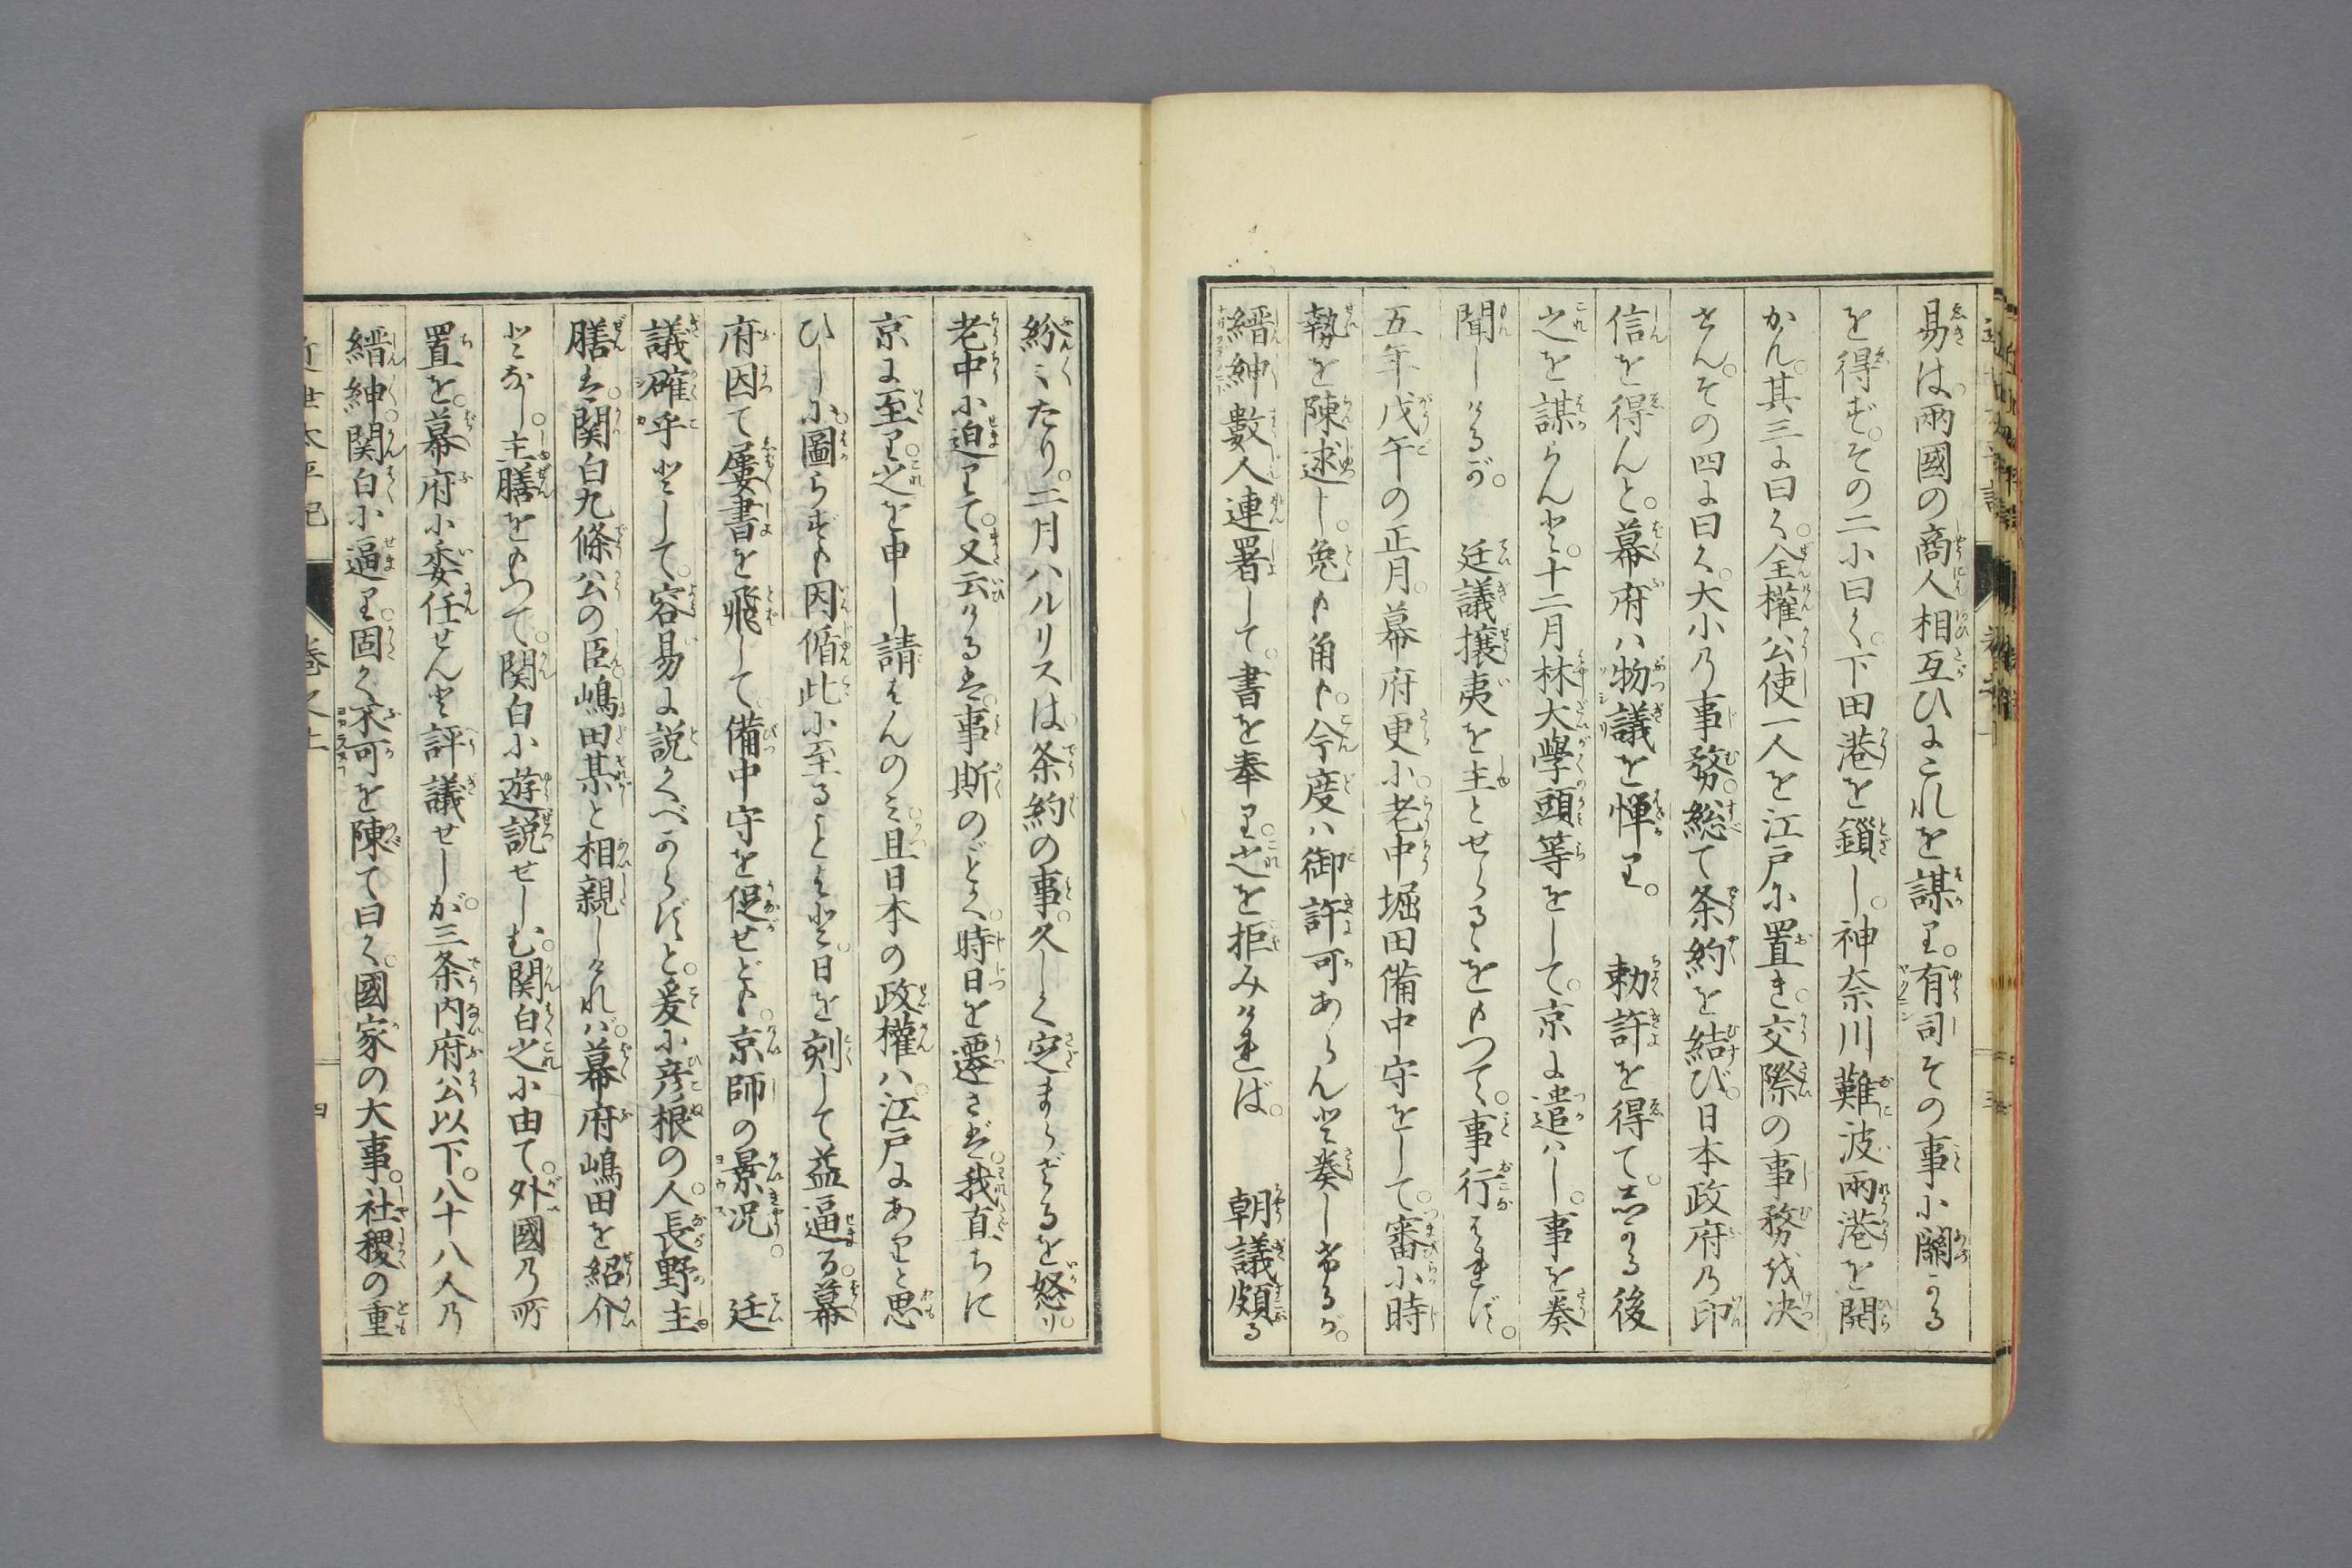 易は。兩國の商人相互ひにこれを謀り。有司その事に關かる
を得ず。その二に曰く。下田港を鎖し。神奈川難波兩港を開
かん。其三に曰く。全權公使一人を江戸に置き。交際の事務を决
せん。その四に曰く。大小の事務。総て条約を結び。日本政府の印
信を得んと。幕府は物議を憚り。 勅許を得て。志かる後
之を謀らんと。十二月林大學頭等をして。京に遣はし。事を奏
聞しけるが。 廷議攘夷を主とせらるゝをもつて。事行はれず。
五年戊午の正月。幕府更に。老中堀田備中守をして。審に時
勢を陳述し。兎も角も。今度は御許可あらんと奏しけるが。
縉紳數人連署して。書を奉り。之を拒みければ。 朝議頗る
紛〻たり。二月ハルリスは。条約の事。久しく定まらざるを怒り。
老中に迫りて。又云けるは。事斯のごとく。時日を遷さば。我直ちに
京に至り。之を申し請はんのミ。且日本の政權は。江戸にありと思
ひしに。圖らずも因循此に至ることよと。日を刻して益逼る。幕
府因て屡書を飛して。備中守を促せども。京師の景況。 廷
議確乎として。容易に説くべからずと。爰に彦根の人。長野主
膳は。関白九條公の臣。嶋田某と相親しければ。幕府嶋田を紹介
となし。主膳をもつて。関白に遊説せしむ。関白之に由て。外國の所
置を。幕府に委任せんと評議せしが。三条内府公以下。八十八人の
縉紳。関白に逼り。固く不可を陳て曰く。國家の大事。社稷の重
近世太平記 巻之上 四